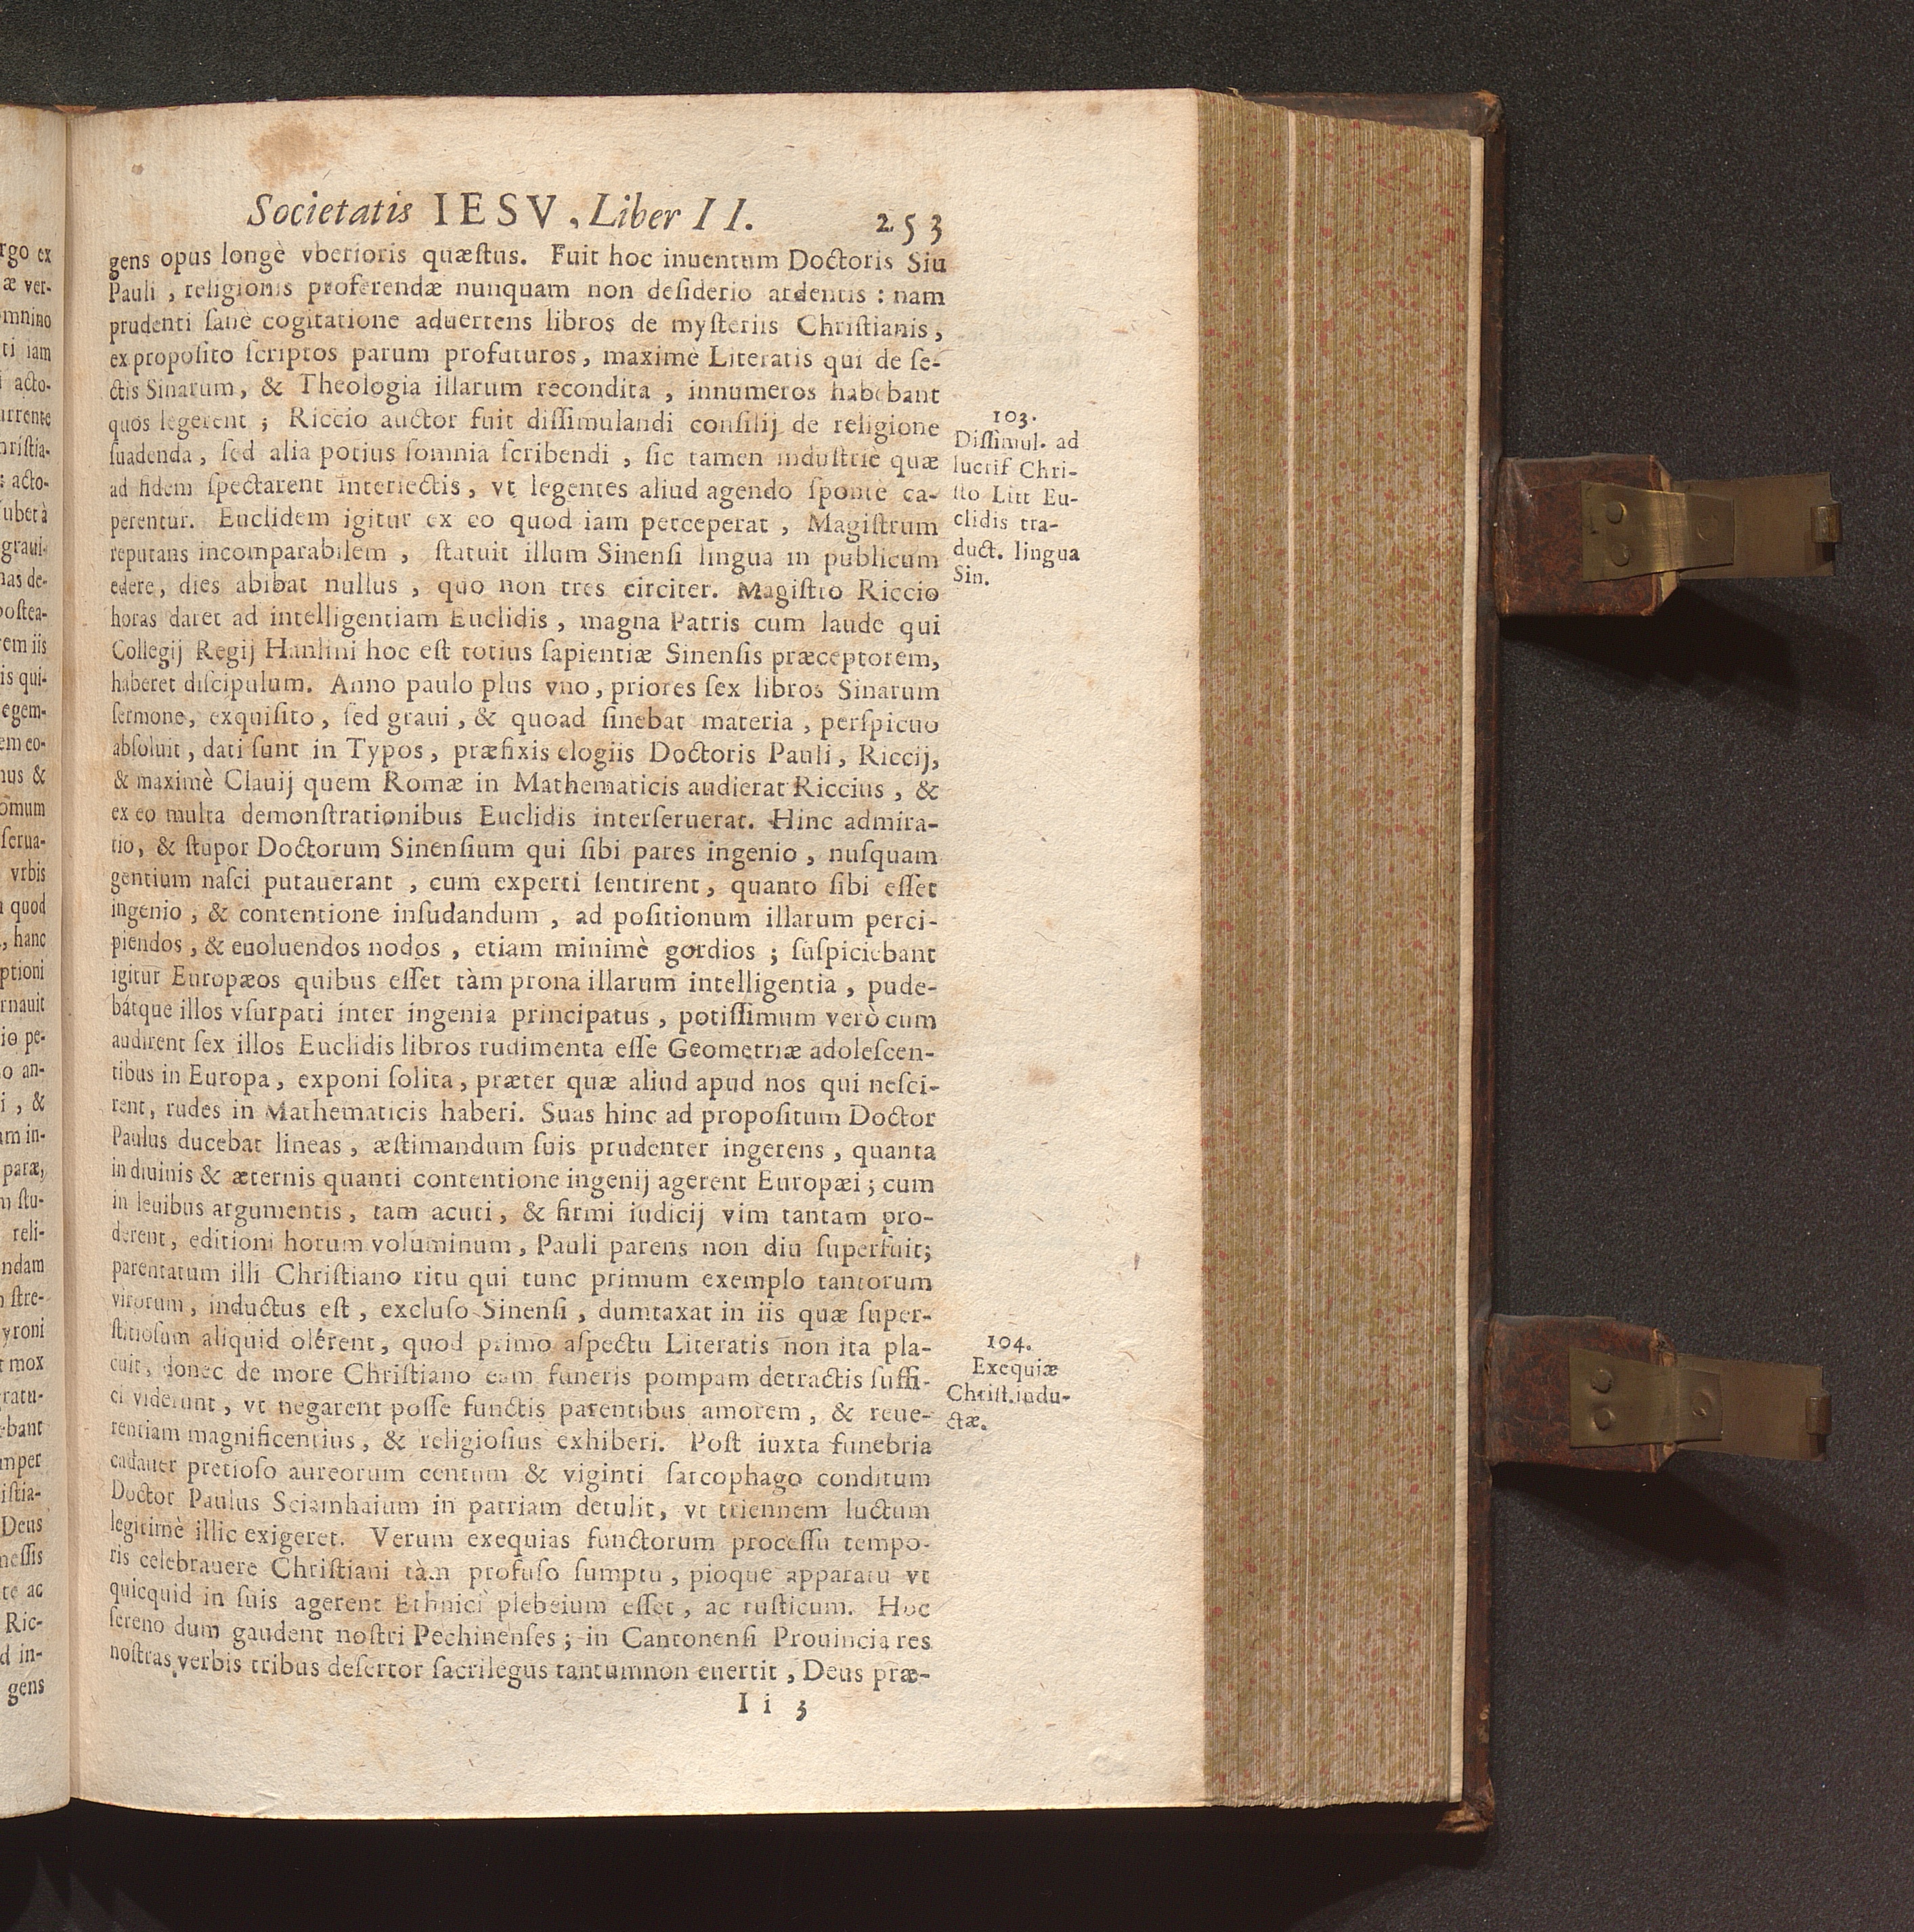 Societatis IESV, Liber II. 253
gens opus longè vberioris quæstus. Fuit hoc inuentum Doctoris Siu
Pauli, religionis proferendæ nunquam non desiderio ardentis: nam
prudenti sanè cogitatione aduertens libros de mysteriis Christianis,
ex proposito scriptos parum profuturos, maximè Literatis qui de se-
ctis Sinarum, & Theologia illarum recondita, innumeros habebant
quos legerent; Riccio auctor fuit dissimulandi consilij de religione
suadenda, sed alia potius somnia scribendi, sic tamen industriè quæ
ad fidem spectarent interiectis, vt legentes aliud agendo sponte ca-
perentur. Euclidem igitur ex eo quod iam perceperat, Magistrum
reputans incomparabilem, statuit illum Sinensi lingua in publicum
edere, dies abibat nullus, quo non tres circiter. Magistro Riccio
horas daret ad intelligentiam Euclidis, magna Patris cum laude qui
Collegij Regij Hanlini hoc est totius sapientiæ Sinensis præceptorem,
haberet discipulum. Anno paulo plus vno, priores sex libros Sinarum
sermone, exquisito, sed graui, & quoad sinebat materia, perspicuo
absoluit, dati sunt in Typos, præfixis elogiis Doctoris Pauli, Riccij,
& maximè Clauij quem Romæ in Mathematicis audierat Riccius, &
ex eo multa demonstrationibus Euclidis interseruerat. Hinc admira-
tio, & stupor Doctorum Sinensium qui sibi pares ingenio, nusquam
gentium nasci putauerant, cum experti sentirent, quanto sibi esset
ingenio, & contentione insudandum, ad positionum illarum perci-
piendos, & euoluendos nodos, etiam minimè gordios; suspiciebant
igitur Europæos quibus esset tàm prona illarum intelligentia, pude-
bátque illos vsurpati inter ingenia principatus, potissimum verò cum
audirent sex illos Euclidis libros rudimenta esse Geometriæ adolescen-
tibus in Europa, exponi solita, præter quæ aliud apud nos qui nesci-
rent, rudes in Mathematicis haberi. Suas hinc ad propositum Doctor
Paulus ducebat lineas, æstimandum suis prudenter ingerens, quanta
in diuinis & æternis quanti contentione ingenij agerent Europæi; cum
in leuibus argumentis, tam acuti, & firmi iudicij vim tantam pro-
derent, editioni horum voluminum, Pauli parens non diu superfuit;
parentatum illi Christiano ritu qui tunc primum exemplo tantorum
virorum, inductus est, excluso Sinensi, dumtaxat in iis quæ super-
stitiosum aliquid olérent, quod primo aspectu Literatis non ita pla-
cuit, donec de more Christiano eam funeris pompam detractis suffi-
ci viderunt, vt negarent posse functis parentibus amorem, & reue-
rentiam magnificentius, & religiosius exhiberi. Post iuxta funebria
cadauer pretioso aureorum centum & viginti sarcophago conditum
Doctor Paulus Sciamhaium in patriam detulit, vt triennem luctum
legitimè illic exigeret. Verum exequias functorum processu tempo-
ris celebrauere Christiani tàm profuso sumptu, pioque apparatu vt
quicquid in suis agerent Ethnici plebeium esset, ac rusticum. Hoc
sereno dum gaudent nostri Pechinenses; in Cantonensi Prouincia res
nostras verbis tribus desertor sacrilegus tantumnon euertit, Deus præ-
Ii 3
103.
Dissimul. ad
lucrif Chri-
sto Litt Eu-
clidis tra-
duct. lingua
Sin.
104.
Exequiæ
Christ. indu-
ctæ.